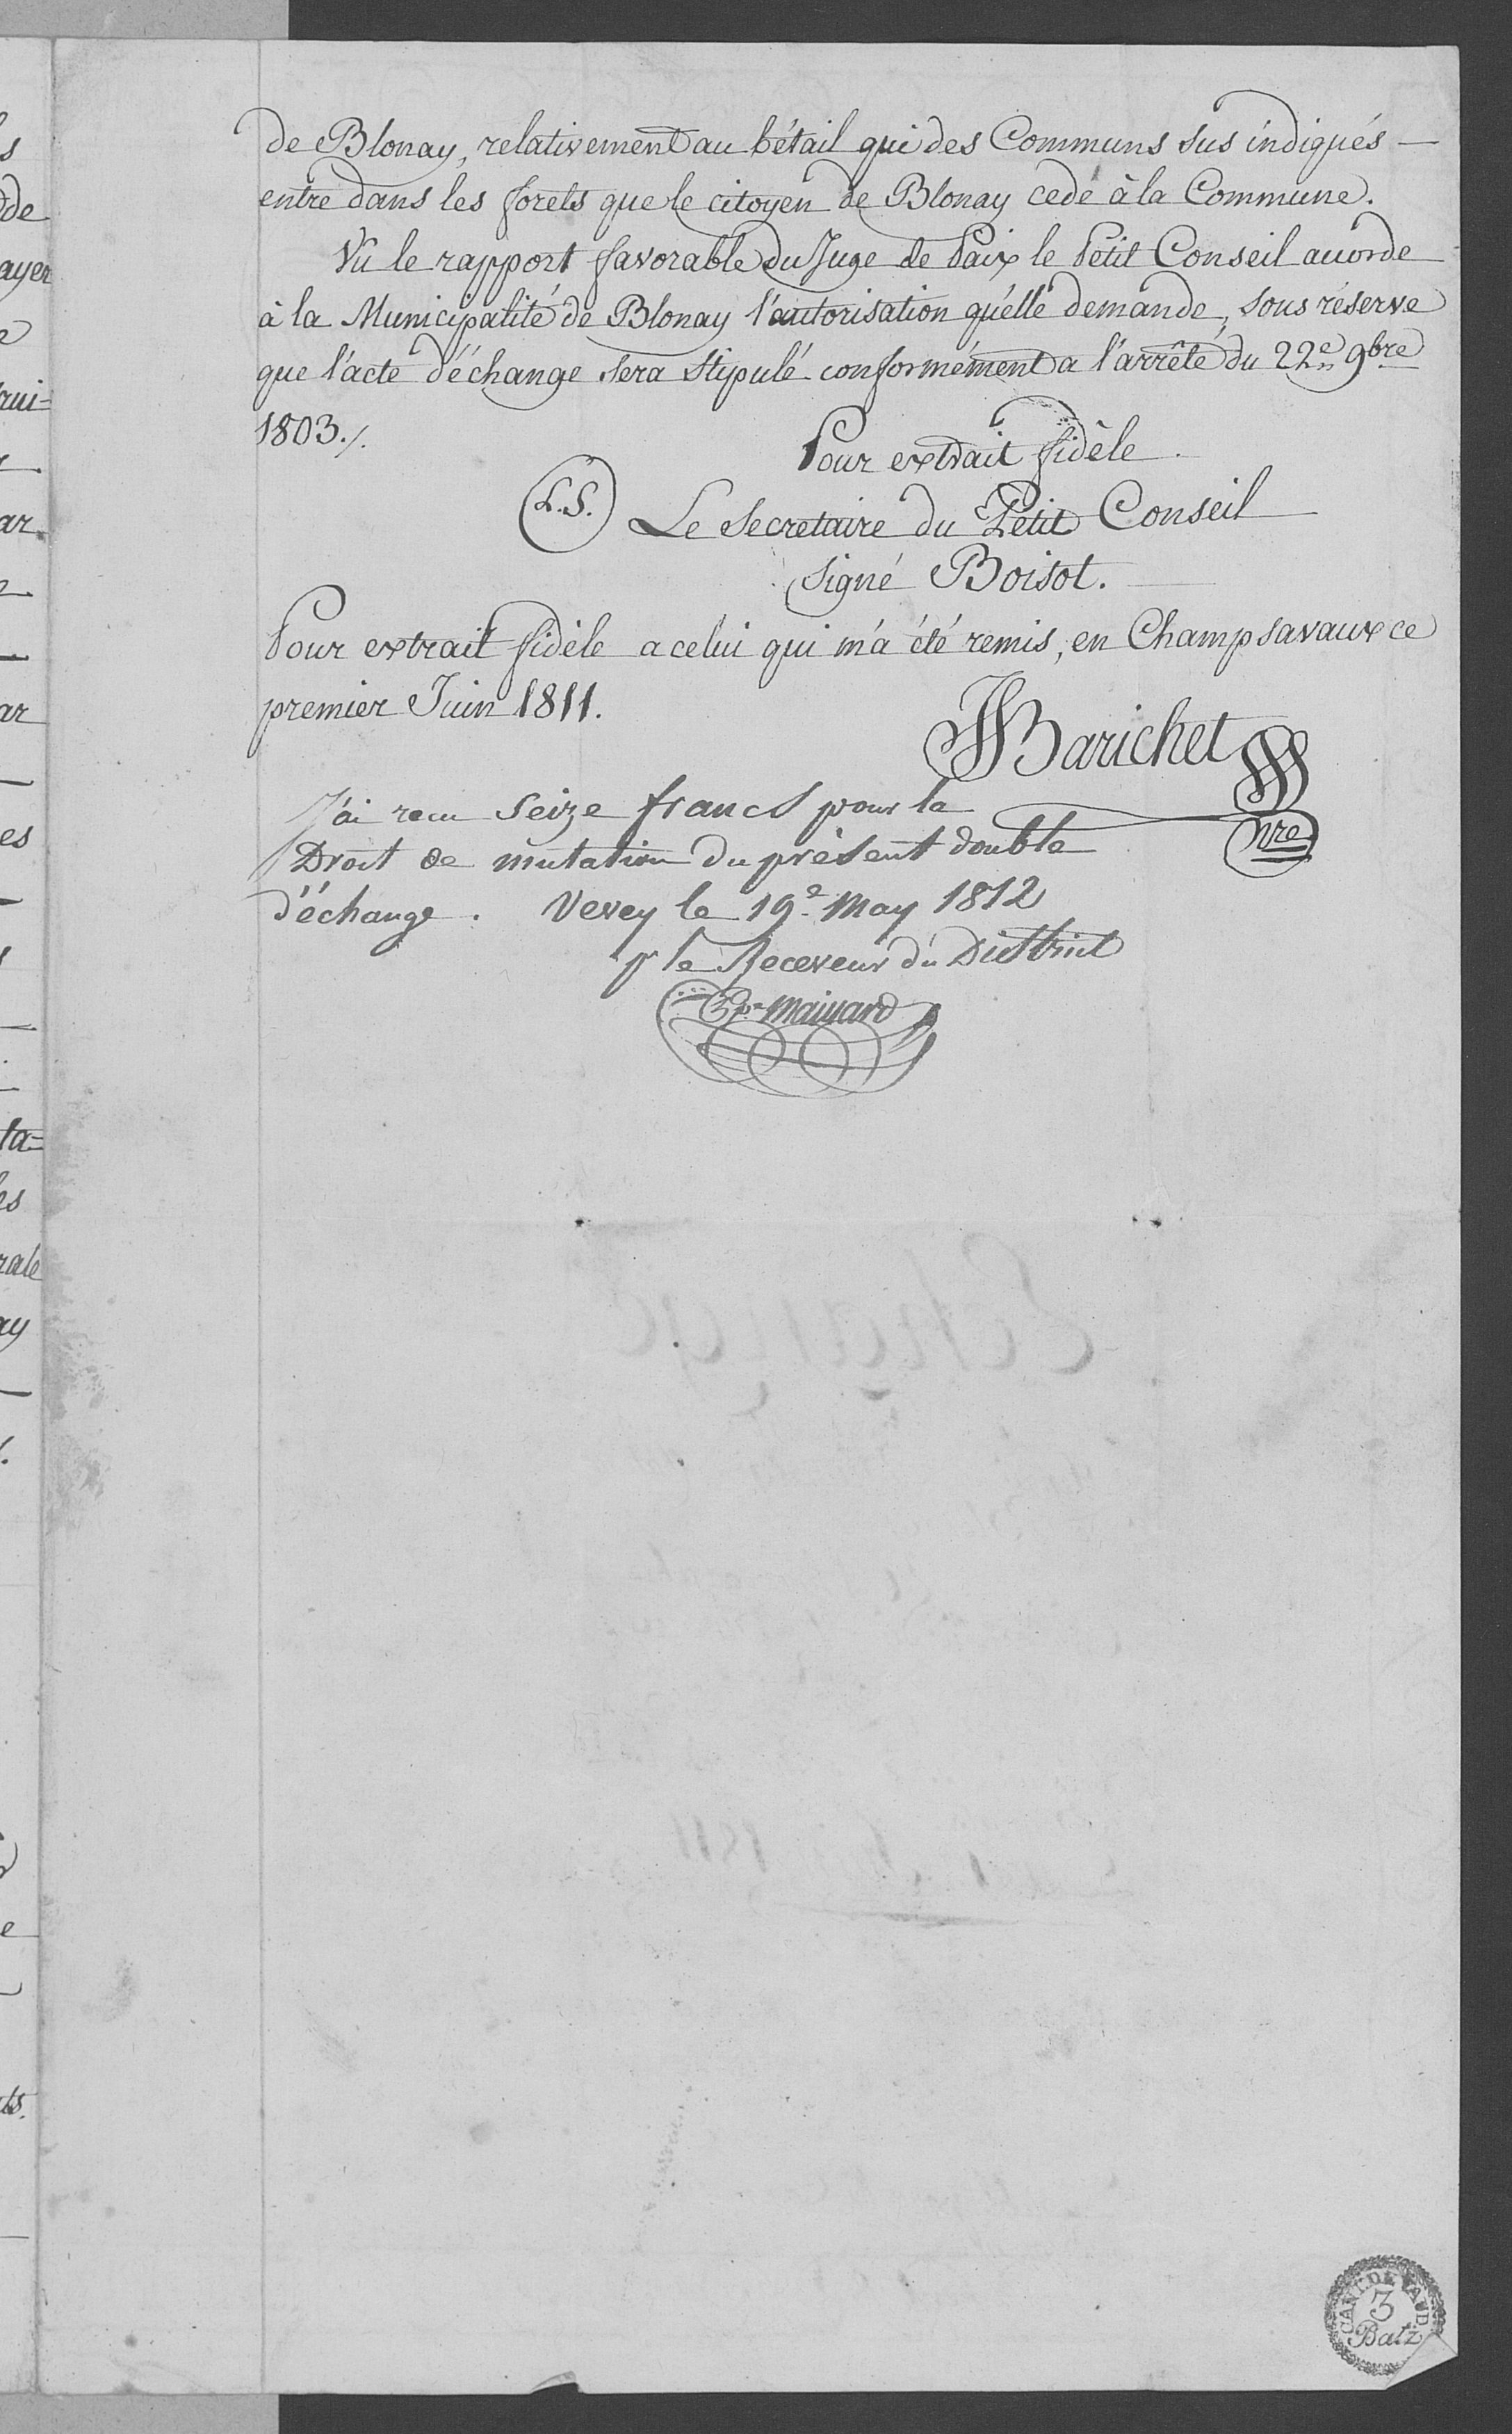 de Blonay, relativement au bétail qui des Communs sus indiqués —
entre dans les forets que le citoyen de Blonay cede à la Commune.
Vu le rapport favorable du Juge de Paix le Petit Conseil accorde
à la Municipalité de Blonay l'autorisation qu'elle demande, sous réserve
que l'acte d'échange sera stipulé conformément a l'arrêté du 22e 9bre
1803./.
Pour extrait fidèle.
(L.S.) Le Secretaire du Petit Conseil
signé Boisot.
Pour extrait fidèle a celui qui m'a été remis, en Champsavaux ce
premier Juin 1811.
Barichet
nre
J'ai recu Seize francs pour la
Droit de mutation du présent double
d'échange. Vevey le 19e May 1812
pr le Receveur du District
CANT. DE VAUD
3
Batz